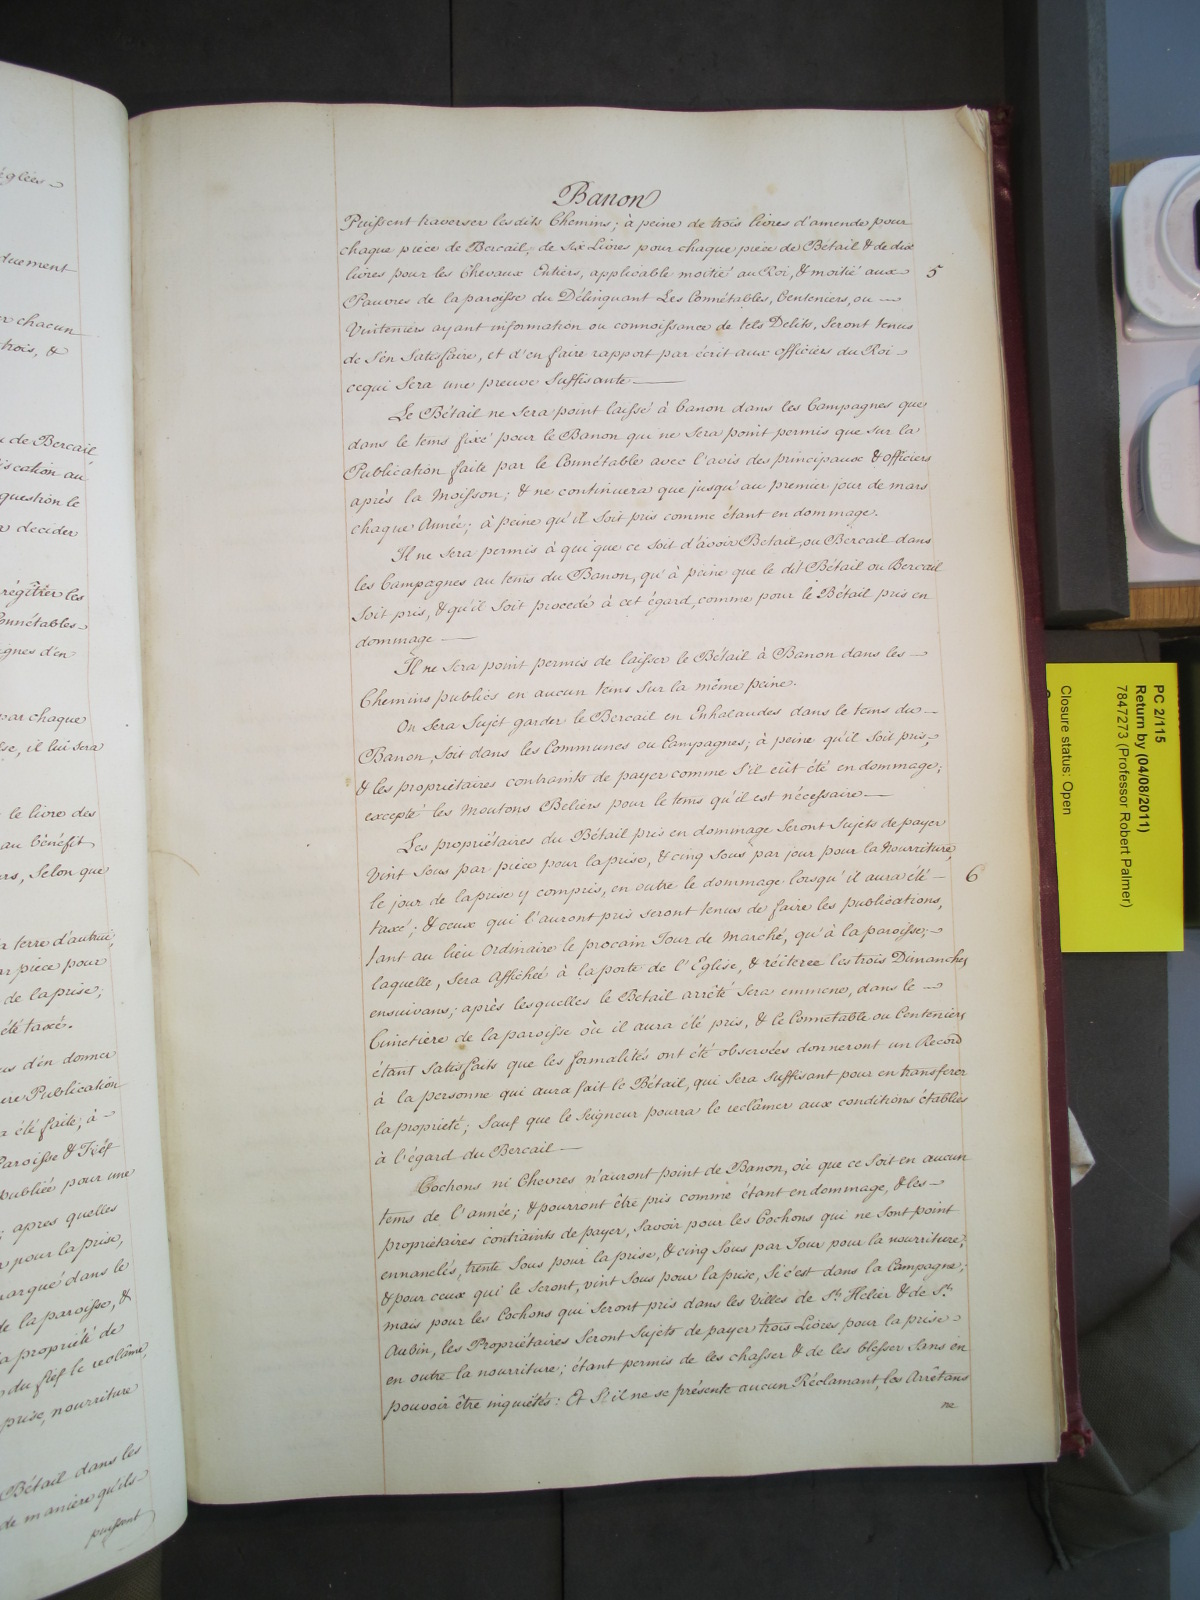 églées
duement
chacun
trois, &
de Bercail
iscation au
question le
decider
régitrer les
Connétables
gnes d'en
par chaque
se, il lui sera
le livre des
au bénéfit
rs, Selon que
a terre d'autrui,
ar piece pour
de la prise;
été taxé.
us d'en donner
ere Publication
a été faite; à
Paroisse & Fiéf
publiée pour une
; apres quelles
pour la prise,
marqué dans le
de la paroisse, &
la propriété de
du fiéf le reclâme,
prise, nourriture
Bétail dans les
de maniere qu'ils
puissent
Banon
Puissent traverser lesdits Chemins; à peine de trois livres d'amende pour
chaque piece de Bercail, de Six Livres pour chaque piece de Bétail & de dix
livres pour les Chevaux Entiers, applicable moitié au Roi, & moitié aux
5
Pauvres de la paroisse du Délinquant Les Connétables, Centeniers, ou
Vinteniers ayant information ou connoissance de tels Delits, Seront tenus
de S'én Satisfaire, et d'en faire rapport par écrit aux Officiers du Roi
cequi Sera une preuve Suffisante
Le Bétail ne Sera point laissé à banon dans les Campagnes que
dans le tems fixé pour le Banon qui ne Sera point permis que Sur la
Publication faite par le Connétable avec l'avis des principaux & Officiers
après la Moisson; & ne continuera que jusqu'au premier jour de mars
chaque Année; à peine qu'il Soit pris comme étant en dommage.
Il ne Sera permis à qui que ce soit d'avoir Betail, ou Bercail dans
les Campagnes au tems du Banon, qu'à peine que le dit Bétail ou Bercail
Soit pris, & qu'il Soit procedé à cet égard, comme pour le Bétail pris en
dommage
Il ne Sera point permis de laisser le Bétail à Banon dans les
Chemins publics en aucun tems Sur la même peine.
On Sera Sujèt garder le Bercail en Enhalaudes dans le tems du
Banon, Soit dans les Communes ou Campagnes; à peine qu'il Soit pris,
& les propriétaires contraints de payer comme S'il eût été en dommage;
excepté les Moutons Beliers pour le tems qu'il est nécessaire
Les propriétaires du Bétail pris en dommage Seront Sujets de payer
Vint Sous par piece pour la prise, & cinq Sous par jour pour la nourriture,
6
le jour de la prise y compris, en outre le dommage lorsqu'il aura été
taxé; & ceux qui l'auront pris seront tenus de faire les publications,
tant au lieu Ordinaire le procain Jour de Marché, qu'à la paroisse;
laquelle, Sera Affichée à la porte de l'Eglise, & réiterée les trois Dimanches
ensuivans; après lesquelles le Betail arrêté Sera emmene, dans le
Cimetière de la paroisse où il aura été pris, & le Connetable ou Centeniers
étant Satisfaits que les formalités ont été observées donneront un Record
à la personne qui aura fait le Bétail, qui Sera Suffisant pour en transferer
la propriété; Sauf que le Seigneur pourra le reclâmer aux conditions établies
à l'égard du Bercail
Cochons ni Chevres n'auront point de Banon, où que ce Soit en aucun
tems de l'année; & pourront être pris comme étant en dommage, & les
propriétaires contraints de payer, Savoir pour les Cochons qui ne Sont point
ennanelés, trente Sous pour la prise, & cinq Sous par Jour pour la nourriture;
& pour ceux qui le Seront, vint Sous pour la prise, Si c'est dans la Campagne;
mais pour les Cochons qui Seront pris dans les Villes de St. Helier & de St.
Aubin, les Propriétaires Seront Sujets de payer trois Livres pour la prise
en outre la nourriture; étant permis de les chasser & de les blesser Sans en
pouvoir être inquiétés: Et S'il ne se présente aucun Réclamant, les Arrêtans
ne
PC 2/115
Return by (04/08/2011)
7847273 (Professor Robert Palmer)
Closure status: Open